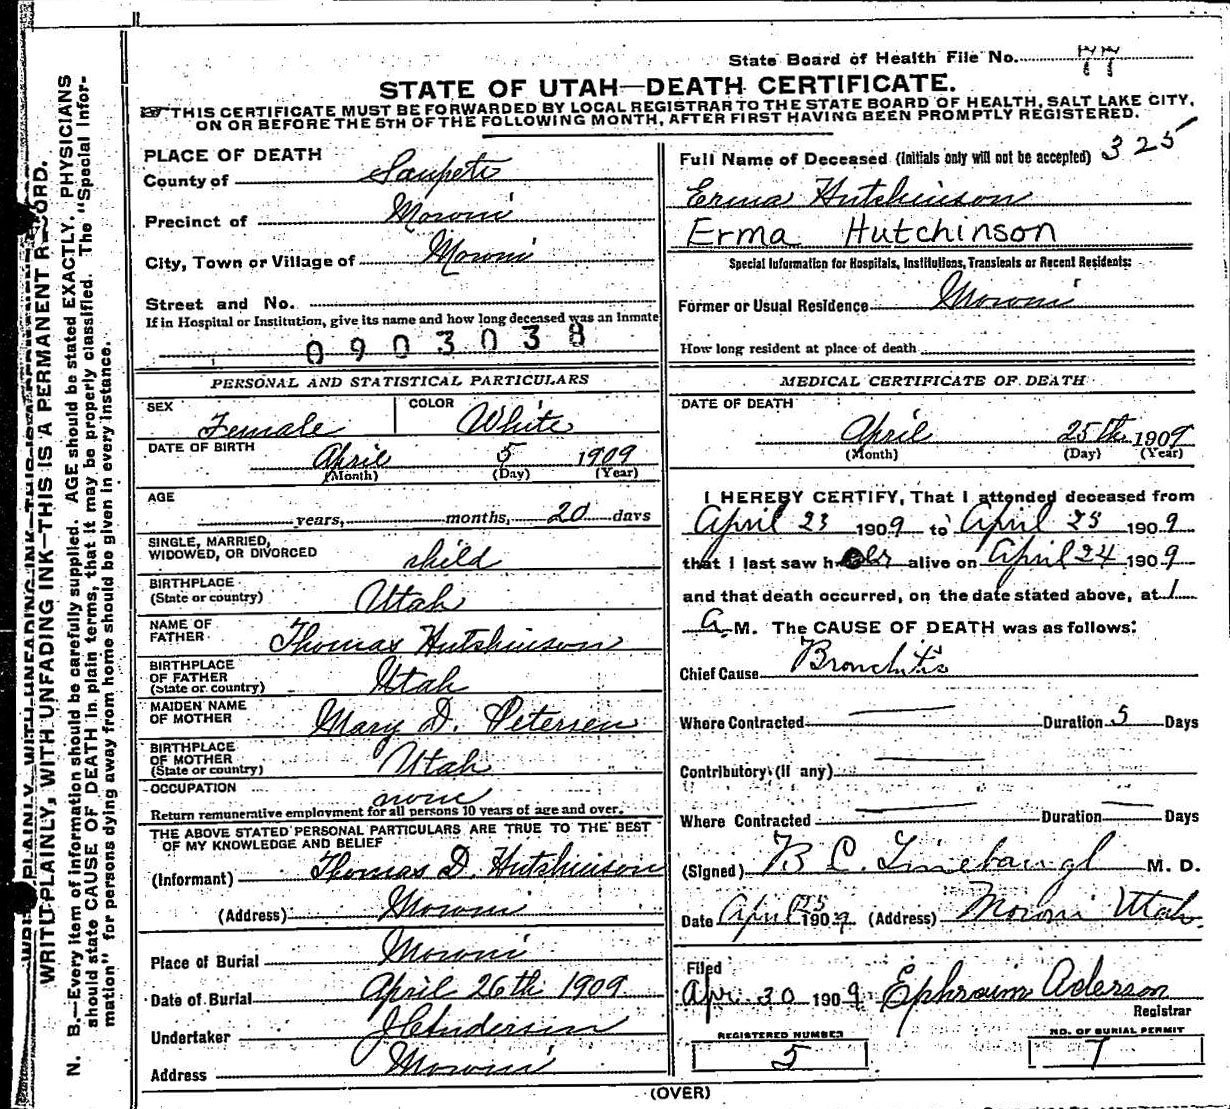 State Board of Health File No. 77
STATE OF UTAH—DEATH CERTIFICATE.
THIS CERTIFICATE MUST BE FORWARDED BY LOCAL REGISTRAR TO THE STATE BOARD OF HEALTH, SALT LAKE CITY,
ON OR BEFORE THE 5TH OF THE FOLLOWING MONTH, AFTER FIRST HAVING BEEN PROMPTLY REGISTERED.
325
PLACE OF DEATH
County of Sanpete
Precinct of Moroni
City, Town or Village of Moroni
Street and No.
If in Hospital or Institution, give its name and how long deceased was an inmate
0903038
PERSONAL AND STATISTICAL PARTICULARS
SEX Female COLOR White
DATE OF BIRTH April 5 1909
(Month) (Day) (Year)
AGE
years, months, 20 days
SINGLE, MARRIED,
WIDOWED, OR DIVORCED child
BIRTHPLACE
(State or country) Utah
NAME OF
FATHER Thomas Hutchinson
BIRTHPLACE
OF FATHER
(State or country) Utah
MAIDEN NAME
OF MOTHER Mary D. Petersen
BIRTHPLACE
OF MOTHER
(State or country) Utah
OCCUPATION none
Return remunerative employment for all persons 10 years of age and over.
THE ABOVE STATED PERSONAL PARTICULARS ARE TRUE TO THE BEST
OF MY KNOWLEDGE AND BELIEF
(Informant) Thomas D. Hutchinson
(Address) Moroni
Place of Burial Moroni
Date of Burial April 26th 1909
Undertaker Anderson
Address Moroni
Full Name of Deceased (Initials only will not be accepted)
Erma Hutchinson
Erma Hutchinson
Special Information for Hospitals, Institutions, Transients or Recent Residents:
Former or Usual Residence Moroni
How long resident at place of death
MEDICAL CERTIFICATE OF DEATH
DATE OF DEATH
April 25th 1909
(Month) (Day) (Year)
I HEREBY CERTIFY, That I attended deceased from
April 23 1909 to April 25 1909
that I last saw her alive on April 24 1909
and that death occurred, on the date stated above, at 1
A. M. The CAUSE OF DEATH was as follows:
Chief Cause Bronchitis
Where Contracted — Duration 5 Days
Contributory (if any) —
Where Contracted — Duration — Days
(Signed) B C. Linebaugh M. D.
Date April 25 1909 (Address) Moroni Utah.
Filed
Apr. 30 1909 Ephraim Aderson
Registrar
REGISTERED NUMBER
5
NO. OF BURIAL PERMIT
7
(OVER)
WRITE PLAINLY, WITH UNFADING INK—THIS IS A PERMANENT RECORD.
N. B.—Every item of information should be carefully supplied. AGE should be stated EXACTLY. PHYSICIANS
should state CAUSE OF DEATH in plain terms, that it may be properly classified. The "Special Infor-
mation" for persons dying away from home should be given in every instance.